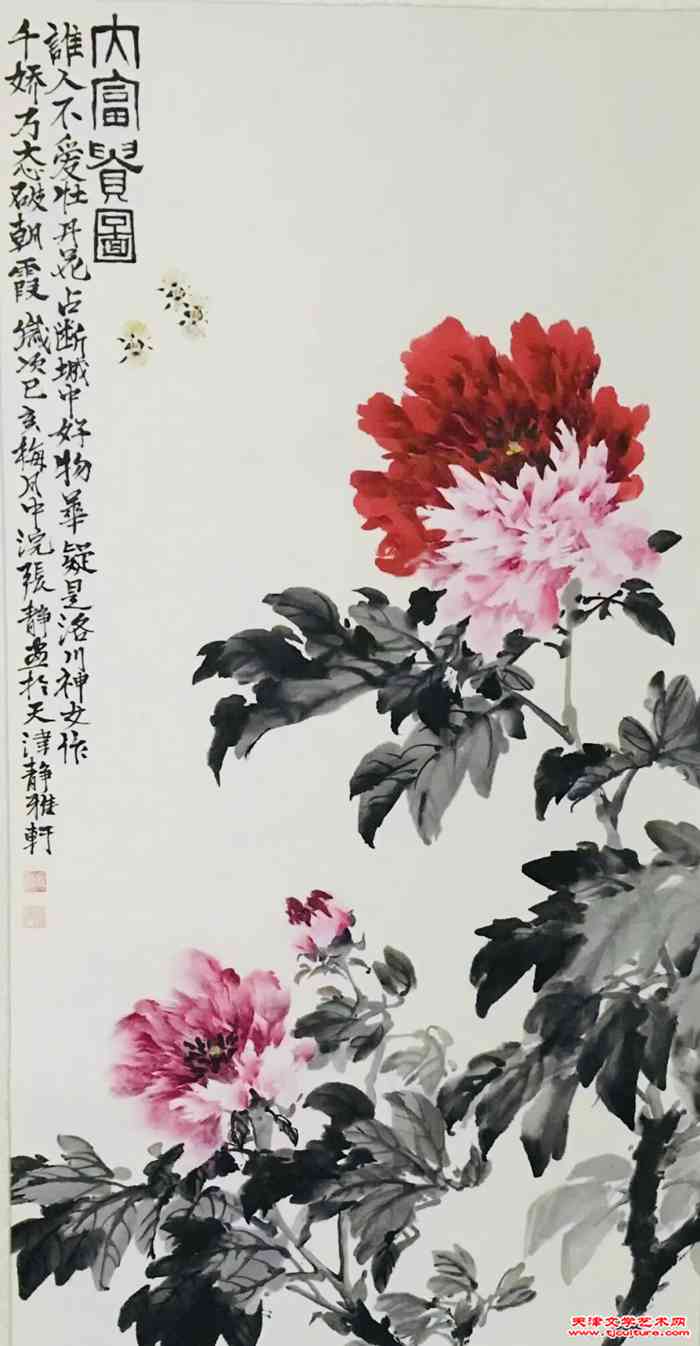 大富貴圖
誰人不愛牡丹花占断城中好物華疑是洛川神女作
千娇万态破朝霞歲次己亥梅月中浣張静畫於天津静雅軒
天津文学艺术网
www.tjculture.com